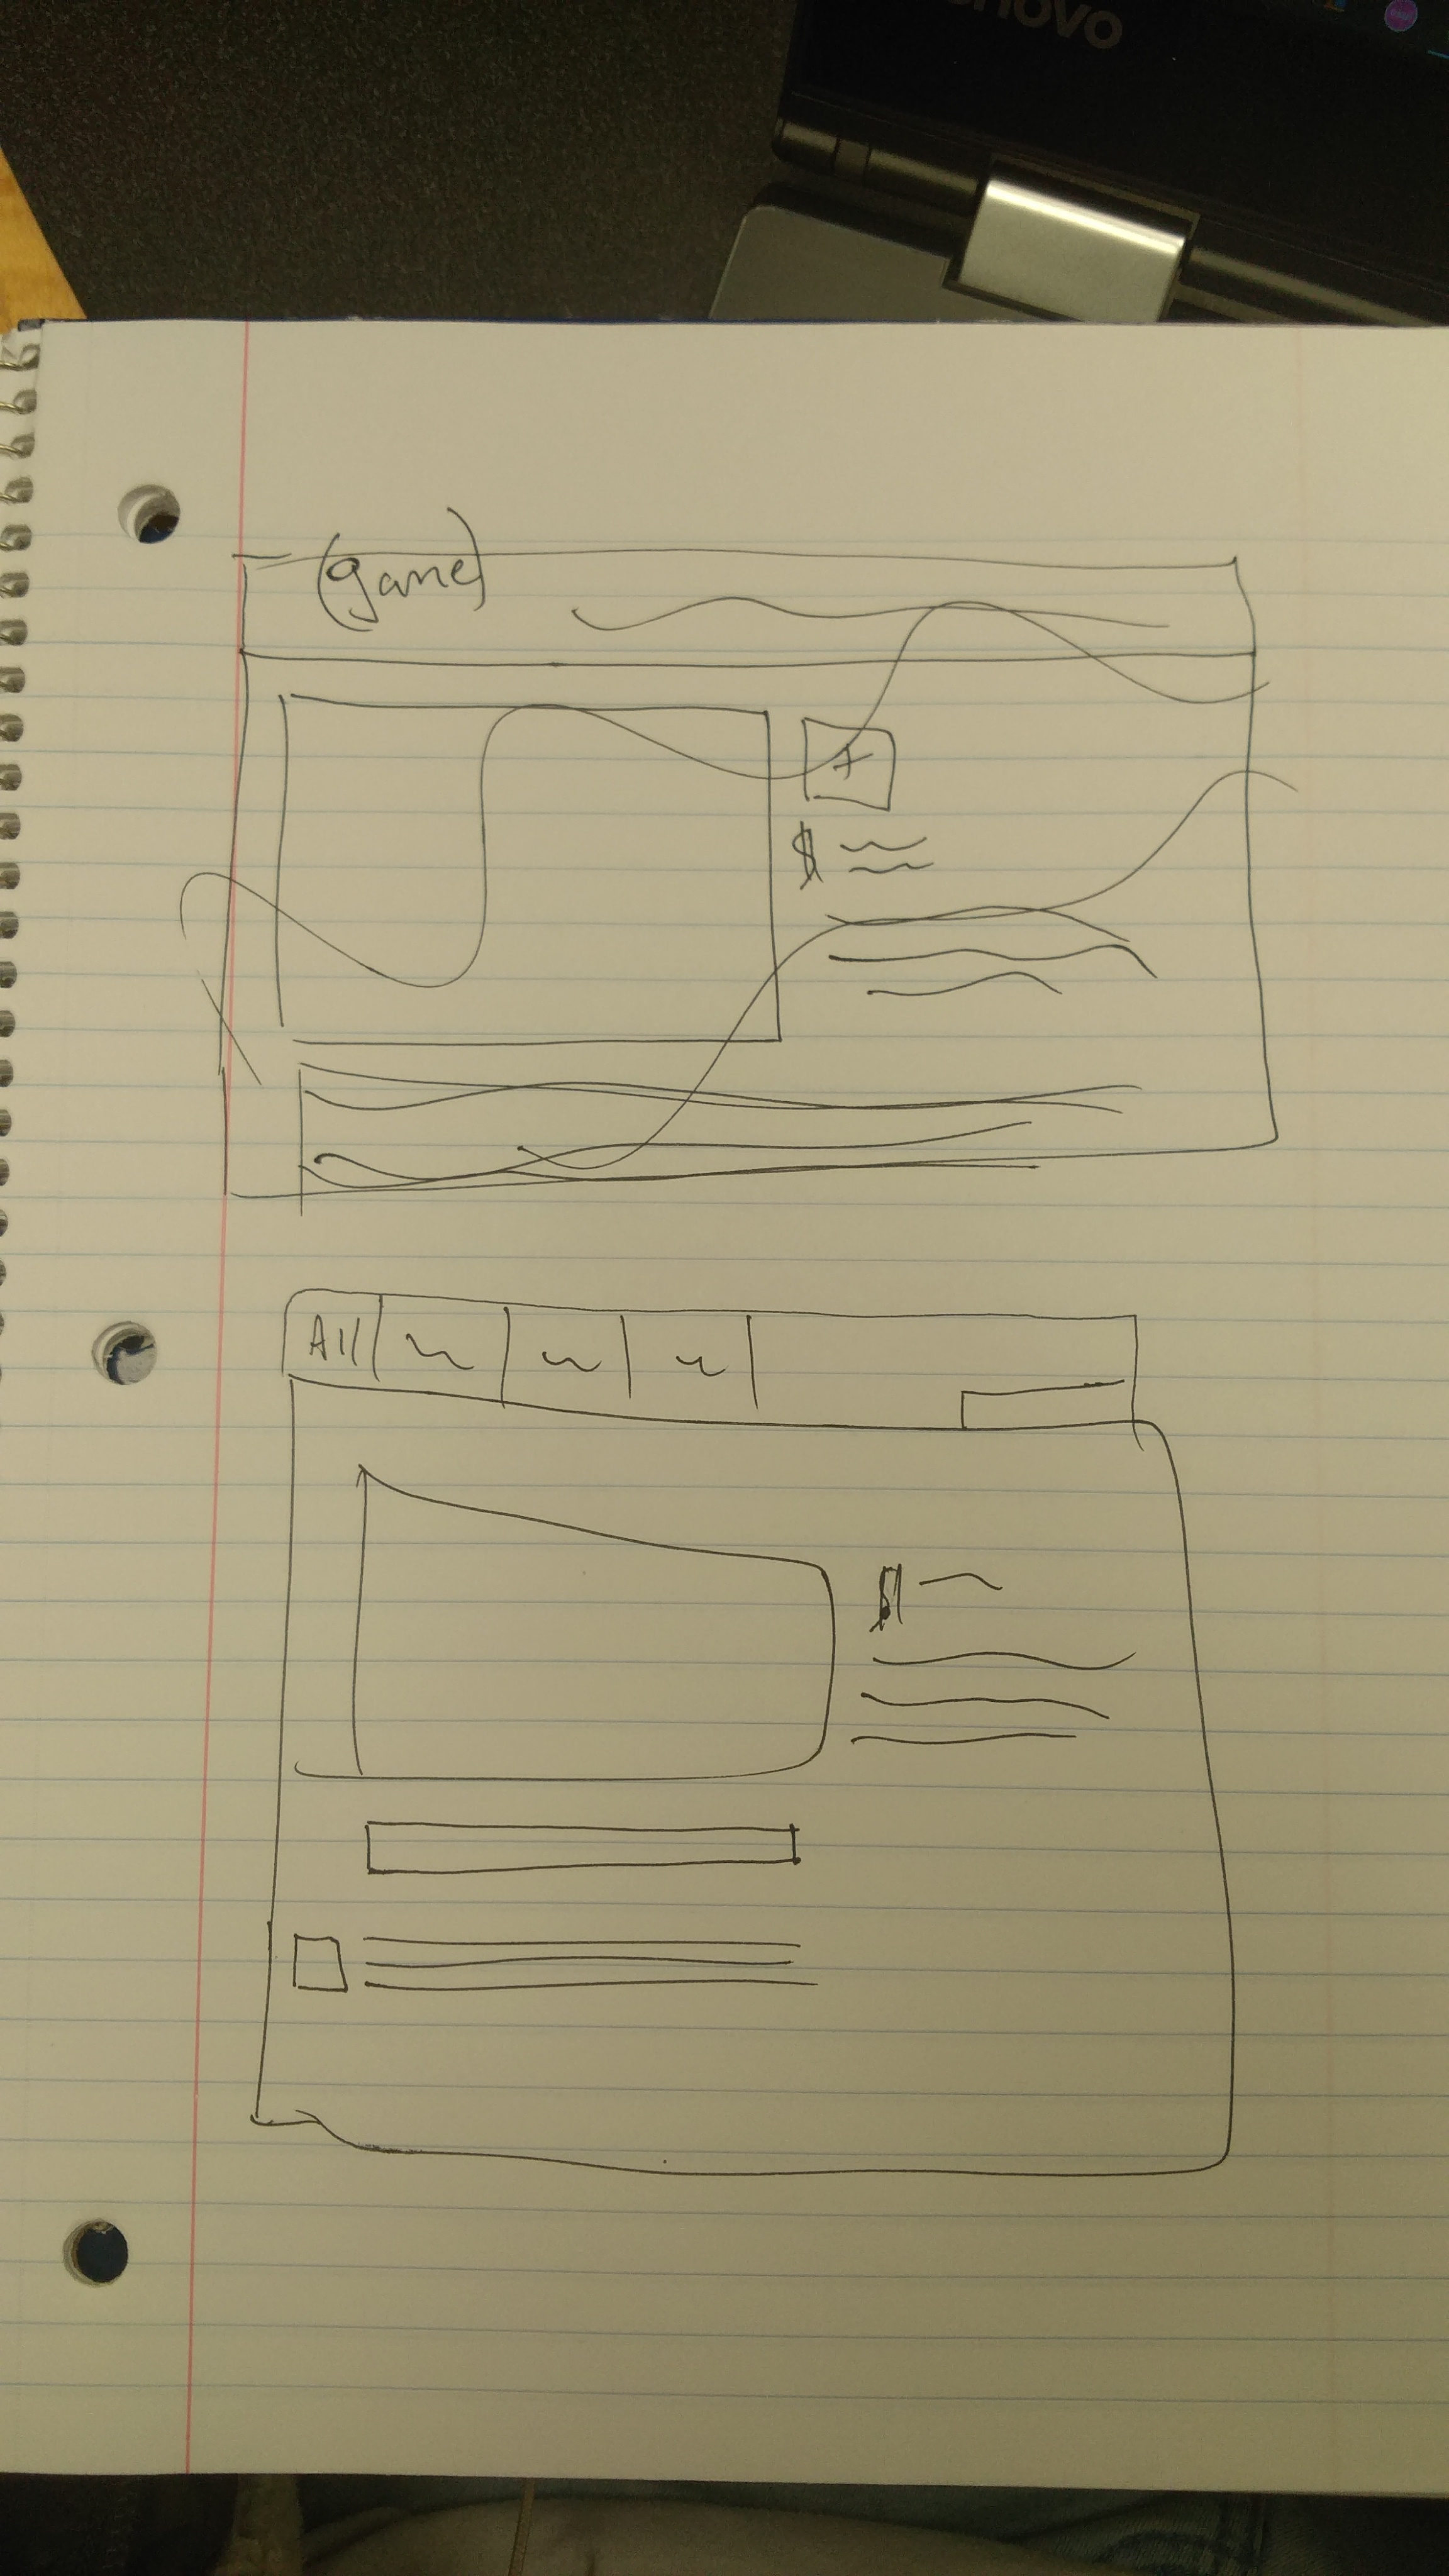 novo
(game)
+
$
All
$